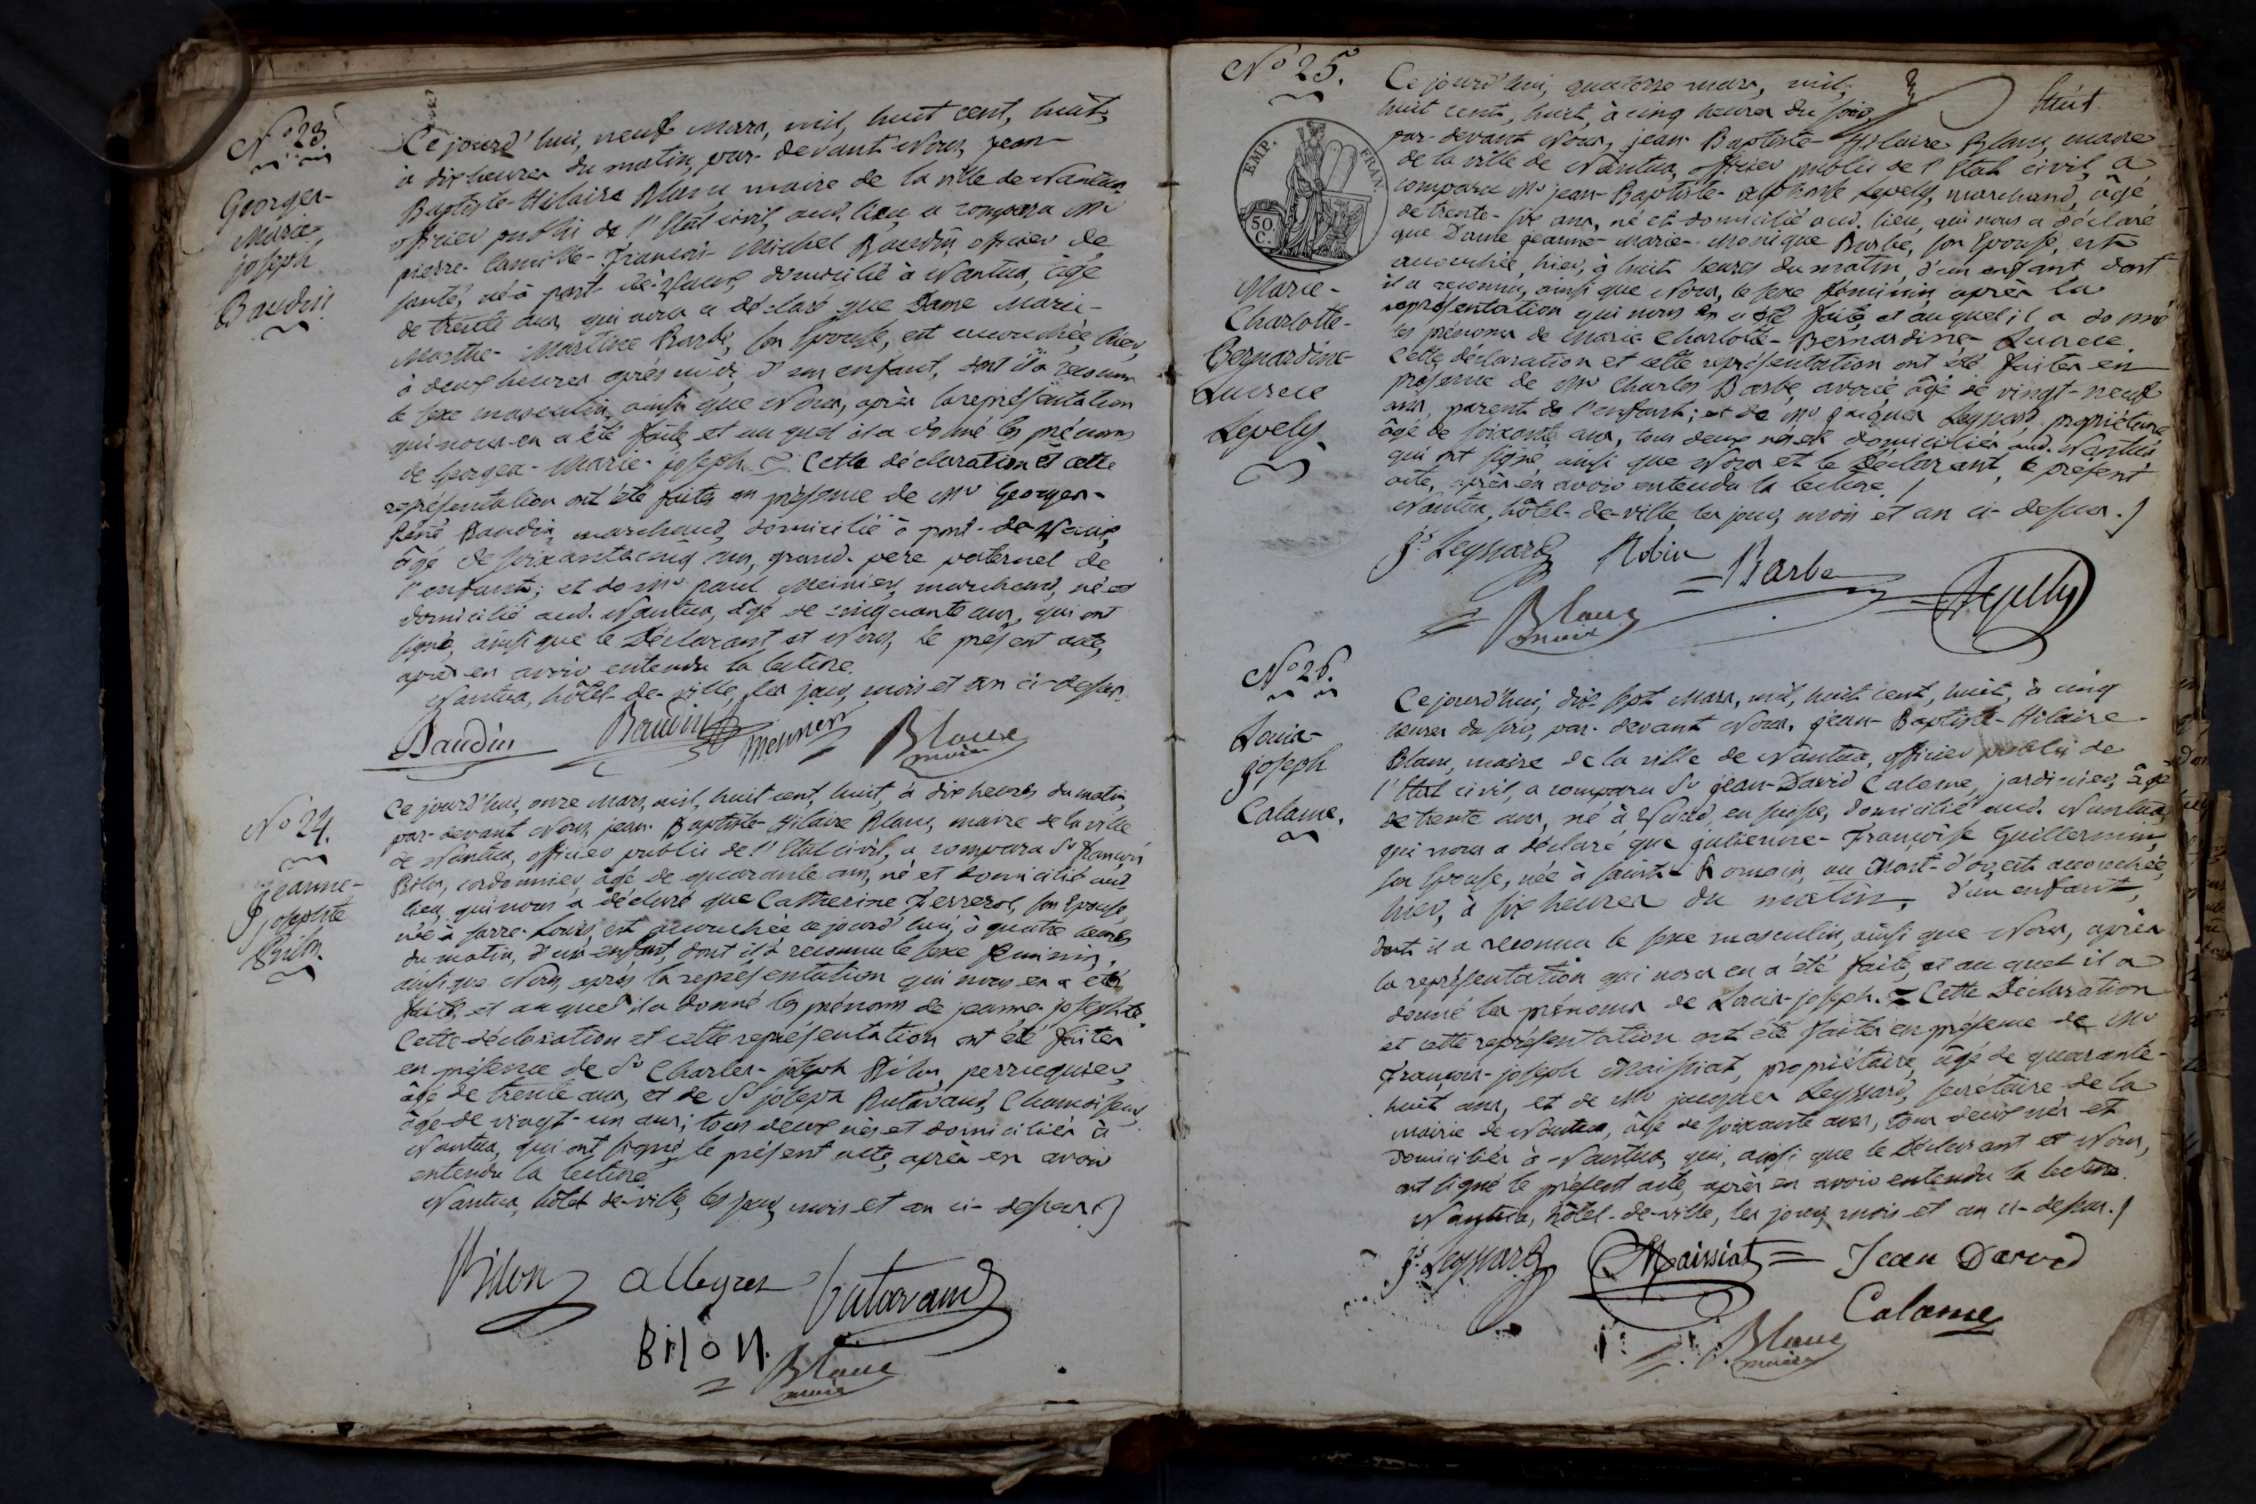 N.º 23.
Georges-
Marie-
joseph
Baudin
Ce jourd'hui, neuf mars, mil, huit cent, huit,
à dix heures du matin, par-devant Nous, jean-
Baptiste-Hilaire Blanc maire de la ville de Nantua,
officier public de l'État civil, aud. lieu, a comparu Mr
pierre-Camille-françois-Michel Baudin, officier de
santé, né à pont-de-Vaux, domicilié à Nantua, âgé
de trente ans, qui nous a déclaré que Dame Marie-
Marthe-Martine Barbe, son Épouse, est accouchée, hier,
à deux heures après midi, d'un enfant, dont il a reconnu
le sexe masculin, ainsi que Nous, après la représentation
qui nous en a été faite, et au quel il a donné les prénoms
de Georges-Marie-joseph. Cette déclaration et cette
représentation ont été faites en présence de Mr Georges-
René Baudin, marchand, domicilié à pont-de-Vaux,
âgé de soixante cinq ans, grand-pere paternel de
l'enfant; et de Mr paul Meinier, marchand, né et
domicilié aud. Nantua, âgé de cinquante ans, qui ont
signé, ainsi que le Déclarant et Nous, le présent acte,
après en avoir entendu la lecture.
Nantua, hôtel-de-ville, les jour, mois et an ci-dessus.
Baudin Baudin Meinier Blanc
maire
N.º 24.
Jeanne-
josephte
Bilon.
Ce jourd'hui, onze mars, mil, huit cent, huit, à dix heures du matin,
par-devant Nous, jean-Baptiste-Hilaire Blanc, maire de la ville
de Nantua, officier public de l'État civil, a comparu Sr françois
Bilon, cordonnier, âgé de quarante ans, né et domicilié aud.
lieu, qui nous a déclaré que Catherine, son Épouse,
née à Sarre-Louis, est accouchée ce jourd'hui, à quatre heures
du matin, d'un enfant, dont il a reconnu le sexe féminin,
ainsi que Nous, après la représentation qui nous en a été
faite, et au quel il a donné les prénoms de jeanne-josephte.
Cette déclaration et cette représentation ont été faites
en présence de Sr Charles-joseph Bilon, perruquier,
âgé de trente ans, et de Sr joseph Butavand, Chamoiseur,
âgé de vingt-un ans; tous deux nés et domiciliés à
Nantua, qui ont signé le présent acte, après en avoir
entendu la lecture
Nantua, hôtel-de-ville, les jour, mois et an ci-dessus.
Bilon allegres Butavand
Bilon. Blanc
maire
N.º 25.
huit
Marie-
Charlotte-
Bernardine-
Lucrece
Levely.
EMP. FRAN.
50
C.
Ce jourd'hui, quatorze mars, mil,
huit cent, huit, à cinq heures du soir,
par-devant Nous, jean-Baptiste-Hilaire Blanc, maire
de la ville de Nantua, officier public de l'État civil, a
comparu Mr jean-Baptiste-alphonse Levely, marchand, âgé
de trente-six ans, né et domicilié aud. lieu, qui nous a déclaré
que Dame jeanne-Marie-Monique Barbe, son Épouse, est
accouchée, hier, à huit heures du matin, d'un enfant dont
il a reconnu, ainsi que Nous, le sexe féminin, après la
représentation qui nous en a été faite, et au quel il a donné
les prénoms de Marie-Charlotte-Bernardine-Lucrece.
Cette déclaration et cette représentation ont été faites en
présence de Mr Charles Barbe, avoué, âgé de vingt-neuf
ans, parent de l'enfant; et de Mr jacques Leyssard, propriétaire,
âgé de soixante ans, tous deux nés et domiciliés aud. Nantua,
qui ont signé, ainsi que Nous et le Déclarant, le présent
acte, après en avoir entendu la lecture.
Nantua, hôtel-de-ville, les jour, mois et an ci-dessus.
Js. Leyssard Robin Barbe
Blanc
maire
N.º 26.
Louis-
joseph
Calame.
Ce jourd'hui, dix-sept Mars, mil, huit cent, huit, à cinq
heures du soir, par-devant Nous, jean-Baptiste-Hilaire
Blanc, maire de la ville de Nantua, officier public de
l'État civil, a comparu Sr jean-David Calame, jardinier, âgé
de trente ans, né à, en suisse, domicilié aud. Nantua,
qui nous a déclaré que julienne-françoise Guillermin,
son Épouse, née à saint-Romain, au Mont-d'or, est accouchée,
hier, à six heures du matin, d'un enfant,
dont il a reconnu le sexe masculin, ainsi que Nous, après
la représentation qui nous en a été faite, et au quel il a
donné les prénoms de Louis-joseph. Cette Déclaration
et cette représentation ont été faites en présence de Mr
françois-joseph Maissiat, propriétaire, âgé de quarante-
huit ans, et de Mr jacques Leyssard, secrétaire de la
mairie de Nantua, âgé de soixante ans, tous deux nés et
domiciliés à Nantua, qui, ainsi que le Déclarant et Nous,
ont signé le présent acte, après en avoir entendu la lecture.
Nantua, hôtel-de-ville, les jour, mois et an ci-dessus.
Js. Leyssard Maissiat Jean David
Calame
Blanc
maire